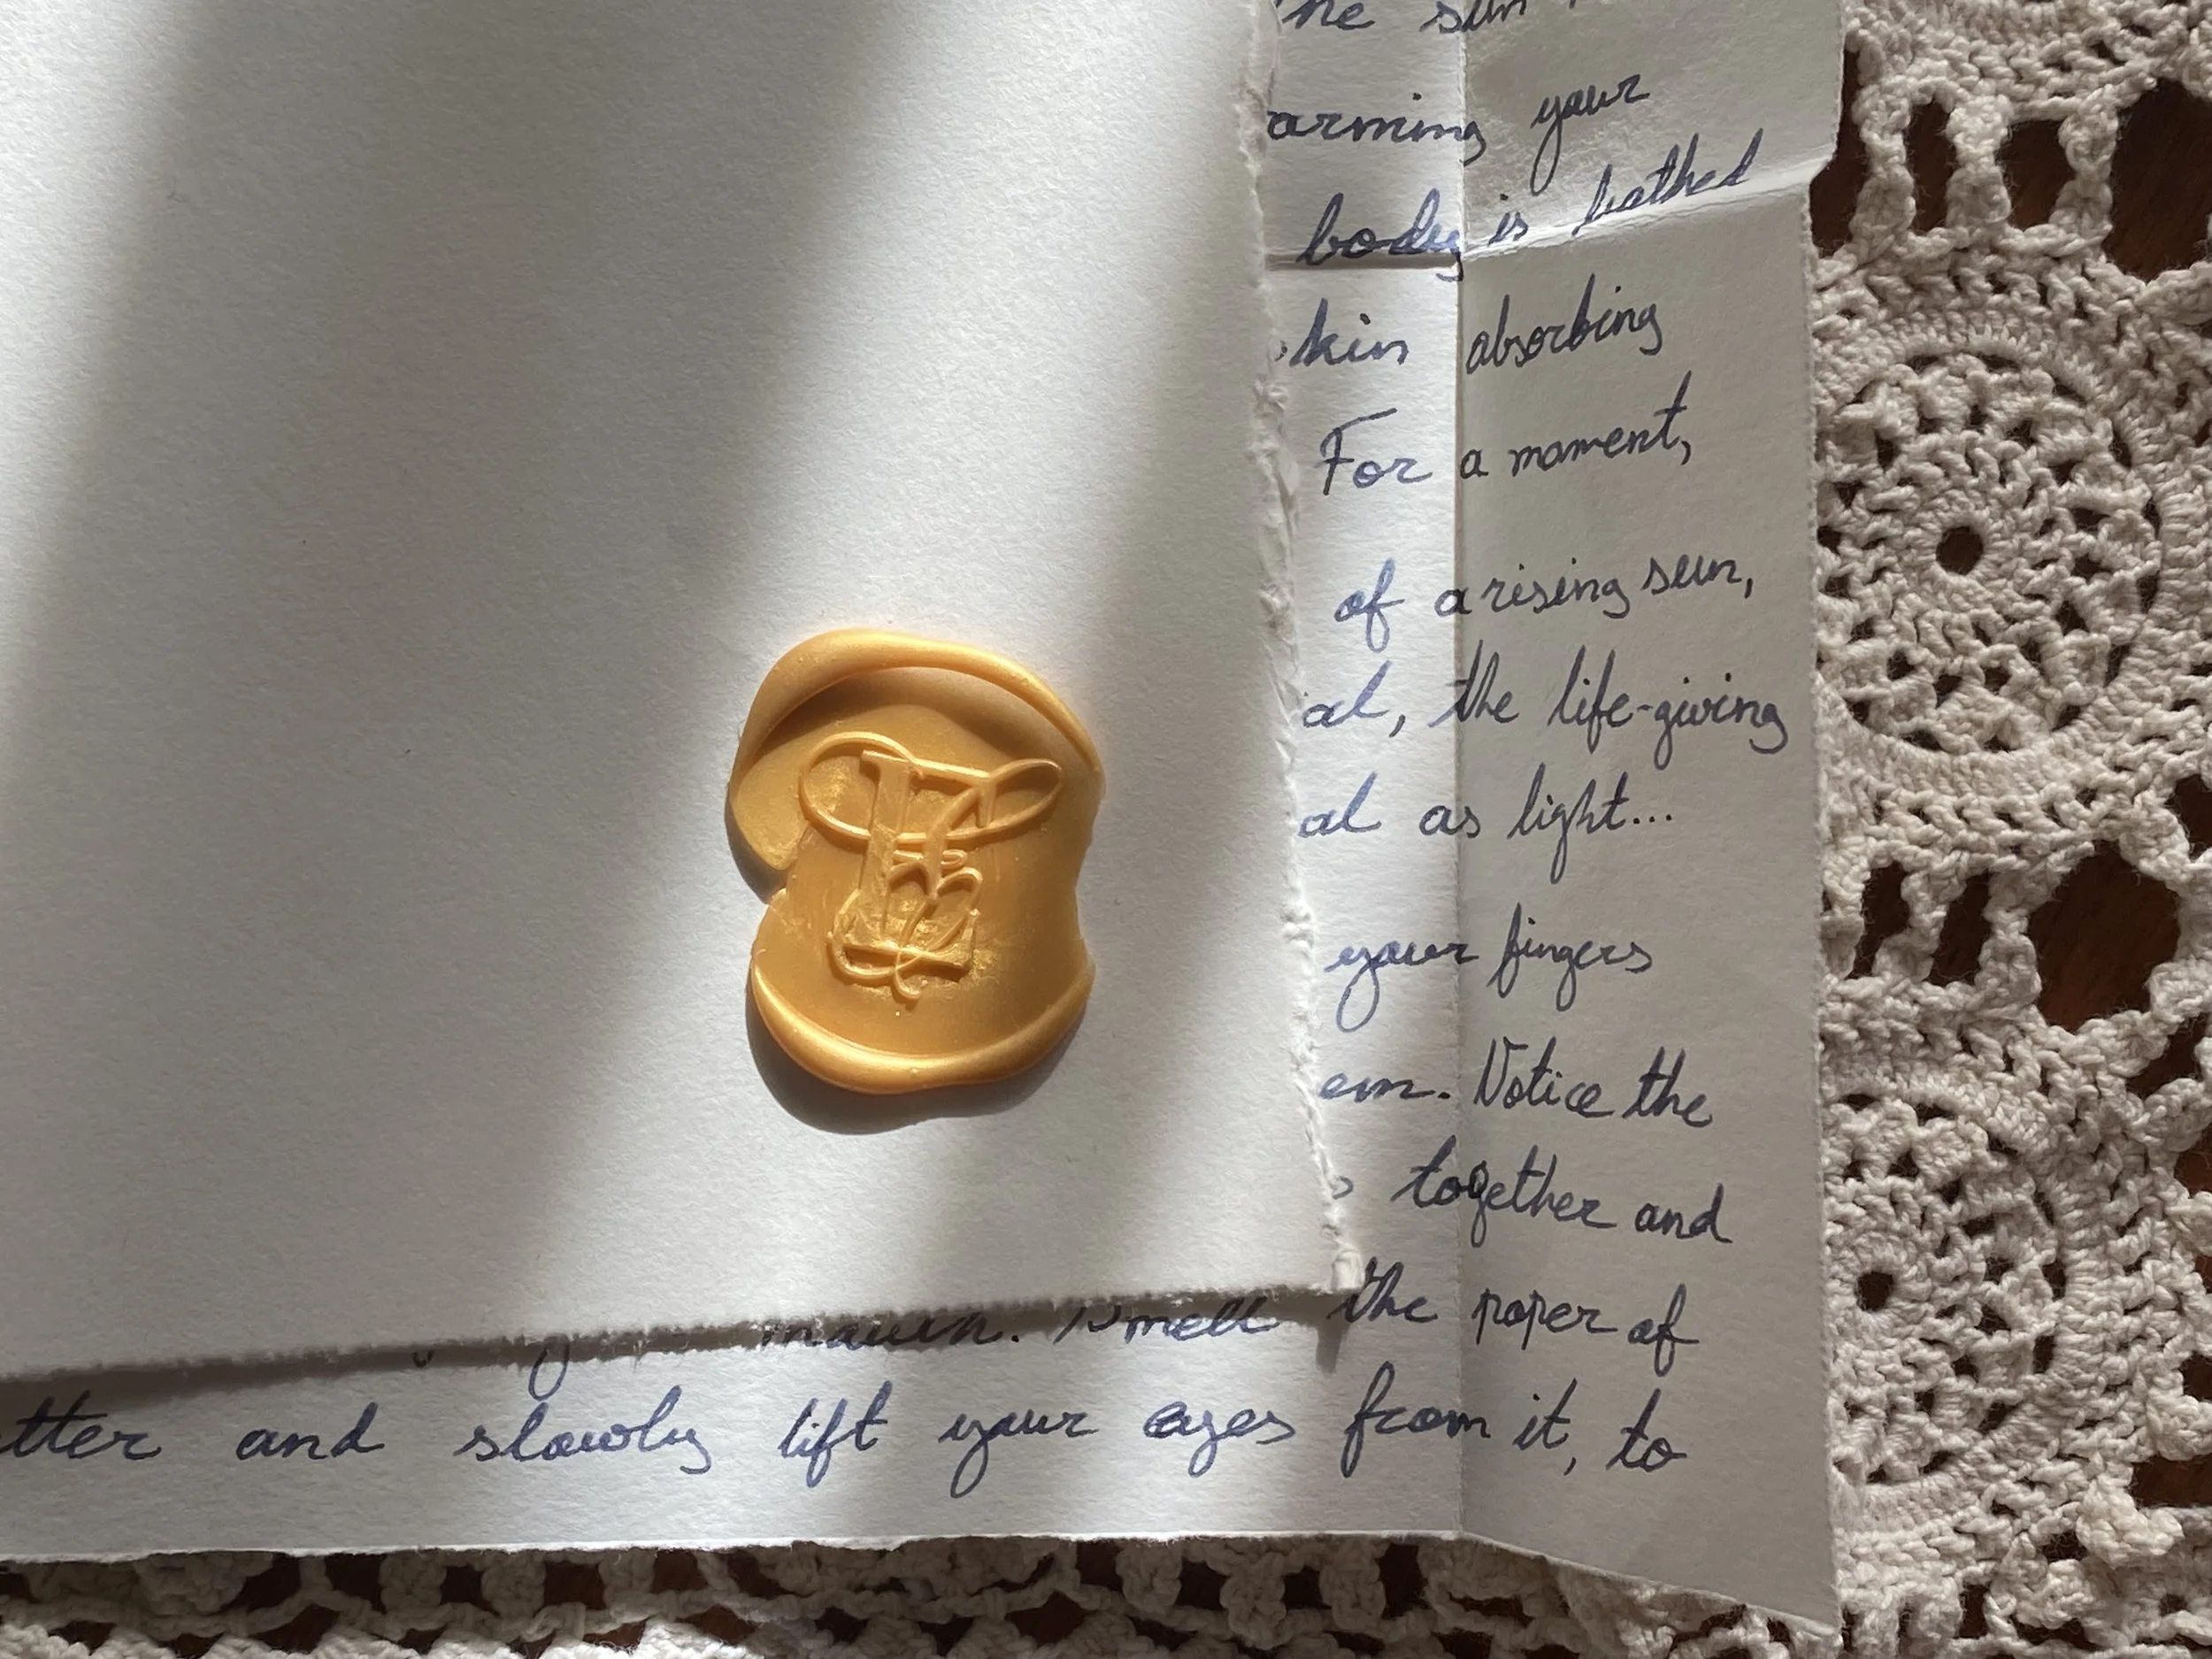 the sun
arming your
body is bathed
skin absorbing
For a moment,
of a rising sun,
al, the life-giving
al as light...
your fingers
em. Notice the
s together and
Smell the paper of
tter and slowly lift your eyes from it, to